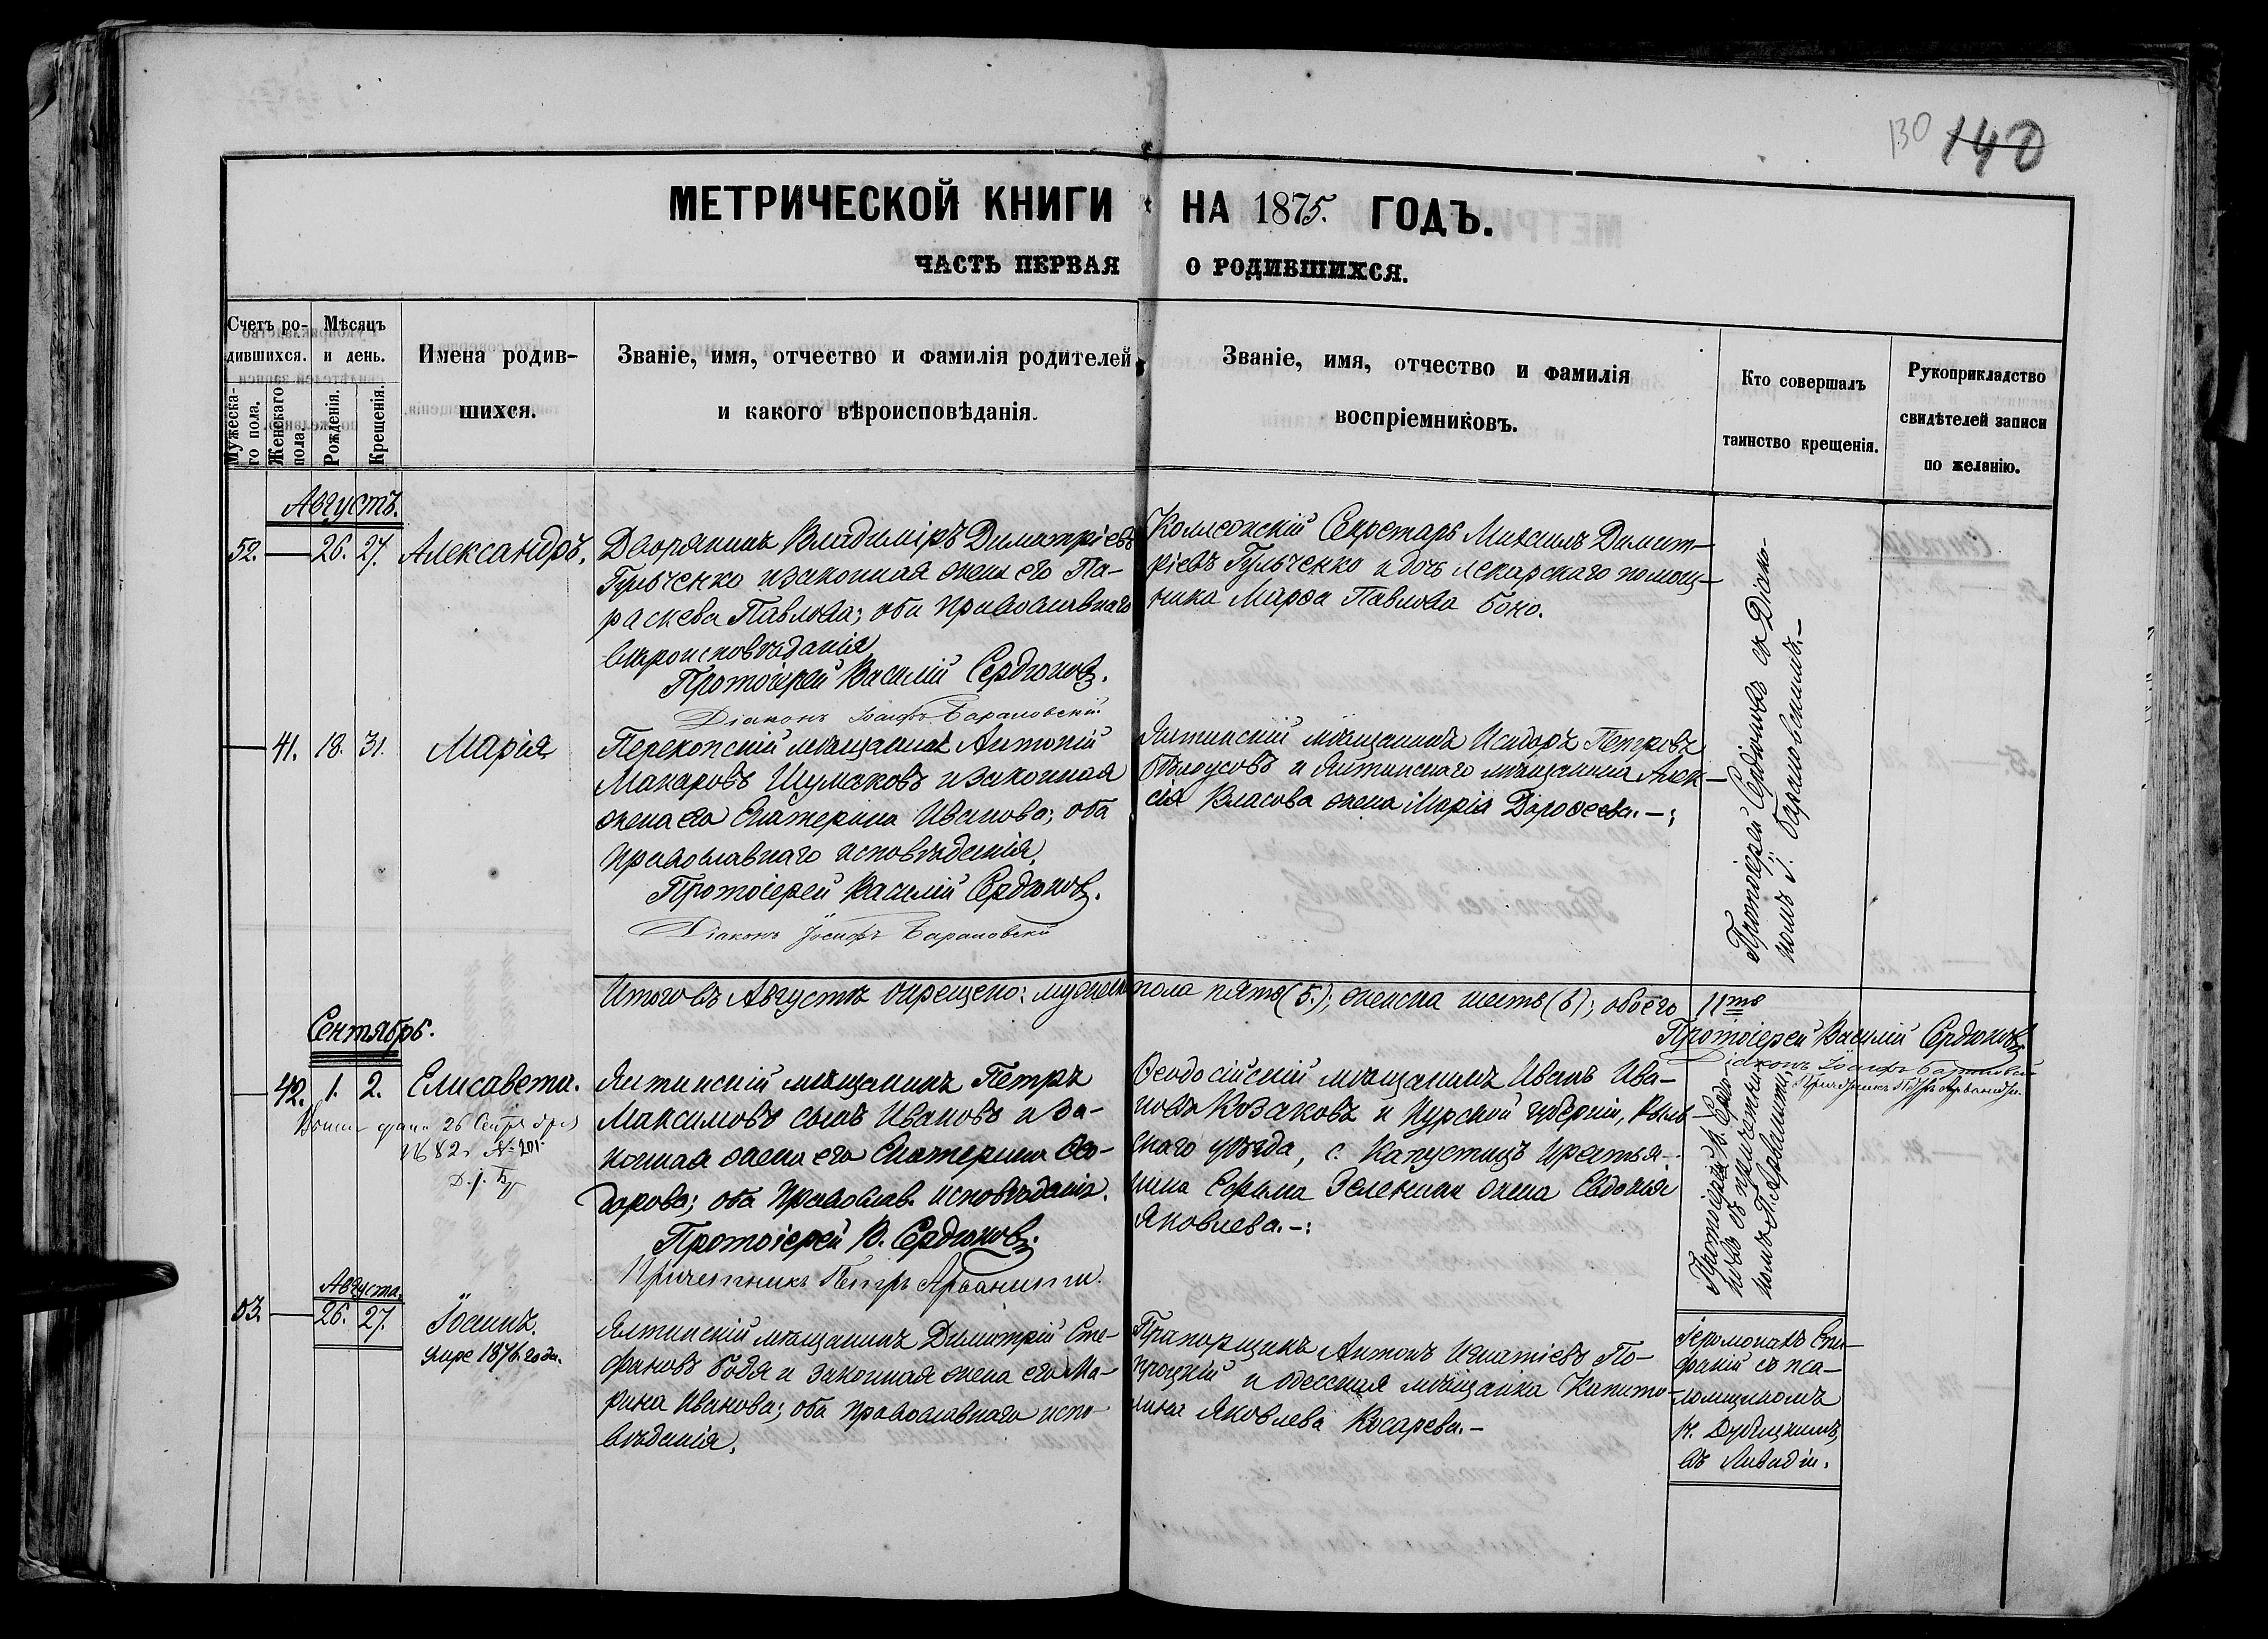 130 140
МЕТРИЧЕСКОЙ КНИГИ НА 1875. ГОДЪ.
ЧАСТЬ ПЕРВАЯ О РОДИВШИХСЯ.
Счетъ ро-
дившихся.
Мужеска-
го пола.
Женскаго
пола.
Мѣсяцъ
и день.
Рожденія.
Крещенія.
Имена родив-
шихся.
Званіе, имя, отчество и фамилія родителей
и какого вѣроисповѣданія.
Званіе, имя, отчество и фамилія
воспріемниковъ.
Кто совершалъ
таинство крещенія.
Рукоприкладство
свидѣтелей записи
по желанію.
Августъ.
52. — 26. 27. Александръ.
Дворянинъ Владиміръ Димитріевъ
Гульченко и законная жена его Па-
раскева Павлова; оба православнаго
вѣроисповѣданія
Протоіерей Василій Сердюковъ.
Діаконъ Іосифъ Барановскій
Коллежскій Секретарь Михаилъ Димит-
ріевъ Гульченко и дочь лекарскаго помощ-
ника Марфа Павлова Боно.
Протоіерей Сердюковъ съ Діако-
номъ І. Барановскимъ.—
— 41. 18. 31. Марія
Перекопскій мѣщанинъ Антоній
Макаровъ Шумаковъ и законная
жена его Екатерина Иванова; оба
православнаго исповѣданія.
Протоіерей Василій Сердюковъ.
Діаконъ Іосифъ Барановскій
Ялтинскій мѣщанинъ Исидоръ Петровъ
Бѣлоусовъ и Ялтинскаго мѣщанина Алек-
сія Власова жена Марія Дорофеева.—;
Итого въ Августѣ окрещено: мужеска пола пять (5.); женска шесть (6); обоего 11ть
Протоіерей Василій Сердюковъ
Діаконъ Іосифъ Барановскій
Причетникъ Петръ Арванити.
Сентябрь.
— 42. 1. 2. Елисавета.
26
1882 г. № 201
Ялтинскій мѣщанинъ Петръ
Максимовъ сынъ Ивановъ и за-
конная жена его Екатерина Ѳео-
дорова; оба Православ. исповѣданія.
Протоіерей В. Сердюковъ.
Причетникъ Петръ Арванити.
Ѳеодосійскій мѣщанинъ Иванъ Ива-
новъ Козаковъ и Курской губерніи, Рыль-
скаго уѣзда, с. Капустицъ крестья-
нина Ефима Зеленина жена Евдокія
Яковлева.—:
Протоіерей В. Сердю-
ковъ съ причетни-
комъ П. Арванити.
Августа.
53. — 26. 27. Іоаннъ.
умре 1876. года.
Ялтинскій мѣщанинъ Димитрій Сте-
фановъ Бодя и законная жена его Ма-
рина Иванова; оба православнаго испо-
вѣданія.
Прапорщикъ Антонъ Игнатіевъ По-
троцкій и Одесская мѣщанка Капито-
лина Яковлева Косарева.—
Іеромонахъ Епи-
фаній съ пса-
ломщикомъ
К. Дубицкимъ,
въ Ливадіи.